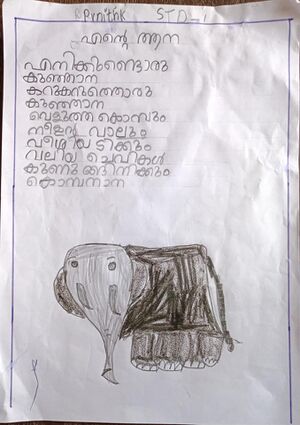 Pvnithk STD-1
എന്റെ ആന
എനിക്കുണ്ടൊരു
കുഞ്ഞാന
കറുകറുത്തൊരു
കുഞ്ഞാന
വെളുത്ത കൊമ്പും
നീളൻ വാലും
വീശിയ ടിക്കും
വലിയ ചെവികൾ
കുണുങ്ങിനിക്കും
കൊമ്പനാന